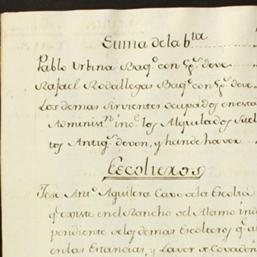 Suma de la b.ta
Pablo Urbina Baq.o con Sp.e deve
Rafael Rodallegas Baq.o con Sp.e deve
Los demas Sirvientes ocupados en esta
Administ.n inc.o los Alquilados Suel
tos Antig.s deven, y hande haver
Escolteros
Jose Ant.o Aguilera Cavo de la Escolta
q.e existe en el Rancho del Alamo inde
pendiente de los demas Escolteros q.e a
en las Estancias, y Lavor de Covadon